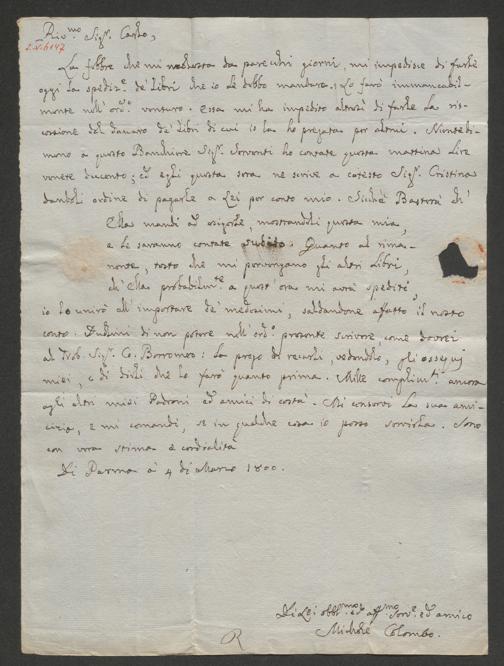 Riv.mo Sig.r Carlo,
2.N.6147
La febbre che mi molesta da parecchi giorni, mi impedisce di farle
oggi la spediz.e de' Libri che io le debbo mandare; Lo farò immancabil-
mente nell' ord.o venturo. Essa mi ha impedito altresì di farle la ris-
cossione del danaro de' Libri di cui io la ho pregata per altrui. Nientedi-
meno a questo Banchiere Sig.r Serventi ho contate questa mattina Lire
venete ducento; ed egli questa sera ne scrive a cotesto Sig.r Cristina
dandogli ordine di pagarle a Lei per conto mio. Sicchè Basterà ch'
Ella mandi ad esigerle, mostrandogli questa mia,
e le saranno contate subito. Quanto al rima-
nente, tosto che mi pervengano gli altri Libri,
ch' Ella probabilm.te a quest' ora mi avrà spediti,
io lo unirò all' importare de' medesimi, saldandone affatto il nostro
conto. Duolmi di non potere nell' ord.o presente scrivere, come dovrei
al Nob. Sig.r C. Borromeo: La prego di recargli, vedendolo, gli ossequj
miei, e di dirgli che lo farò quanto prima. Mille complim.ti ancora
agli altri miei Padroni ed amici di costà. Mi conservi la sua ami-
cizia, e mi comandi, se in qualche cosa io posso servirla. Sono
con vera stima e cordialità
Di Parma à 4 di Marzo 1800.
Di Lei obbl.mo ed aff.mo Serv.e ed amico
Michele Colombo.
R